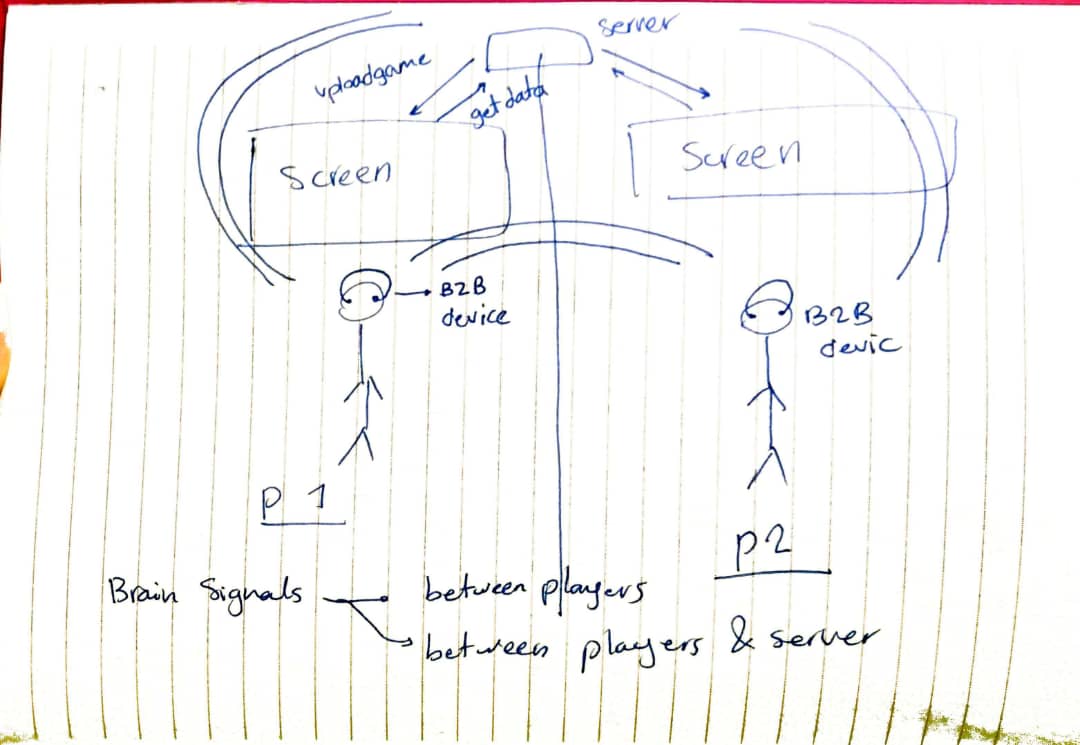 server
uploadgame
get data
Screen
Screen
B2B
device
B2B
devic
P 1
P2
Brain Signals
between players
between players & server